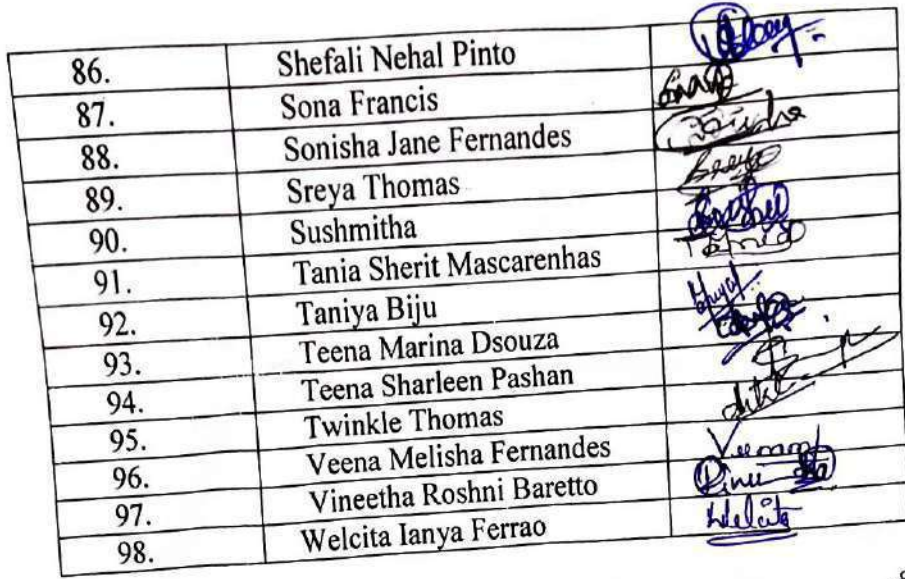 86. Shefali Nehal Pinto
87. Sona Francis
88. Sonisha Jane Fernandes
89. Sreya Thomas
90. Sushmitha
91. Tania Sherit Mascarenhas
92. Taniya Biju
93. Teena Marina Dsouza
94. Teena Sharleen Pashan
95. Twinkle Thomas
96. Veena Melisha Fernandes
97. Vineetha Roshni Baretto
98. Welcita Ianya Ferrao Welcita